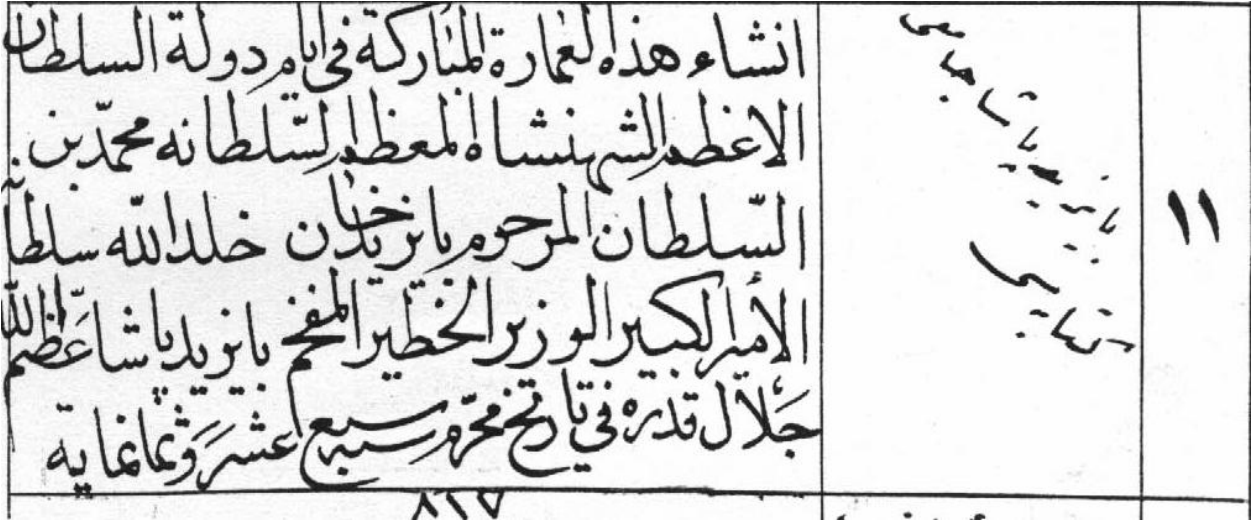 ١١
بايزيد پاشا جامعى
انشاء هذه العمارة المباركة فى ايام دولة السلطان
الاعظم الشهنشاه المعظم السلطانه محمد بن
السلطان المرحوم بايزيد خان خلد الله سلطانه
الأمير الكبير الوزير الخطير المفخم بايزيد پاشا عظم الله
جلال قدره فى تاريخ محرم سنه سبع عشر وثمانمايه
٨١٧